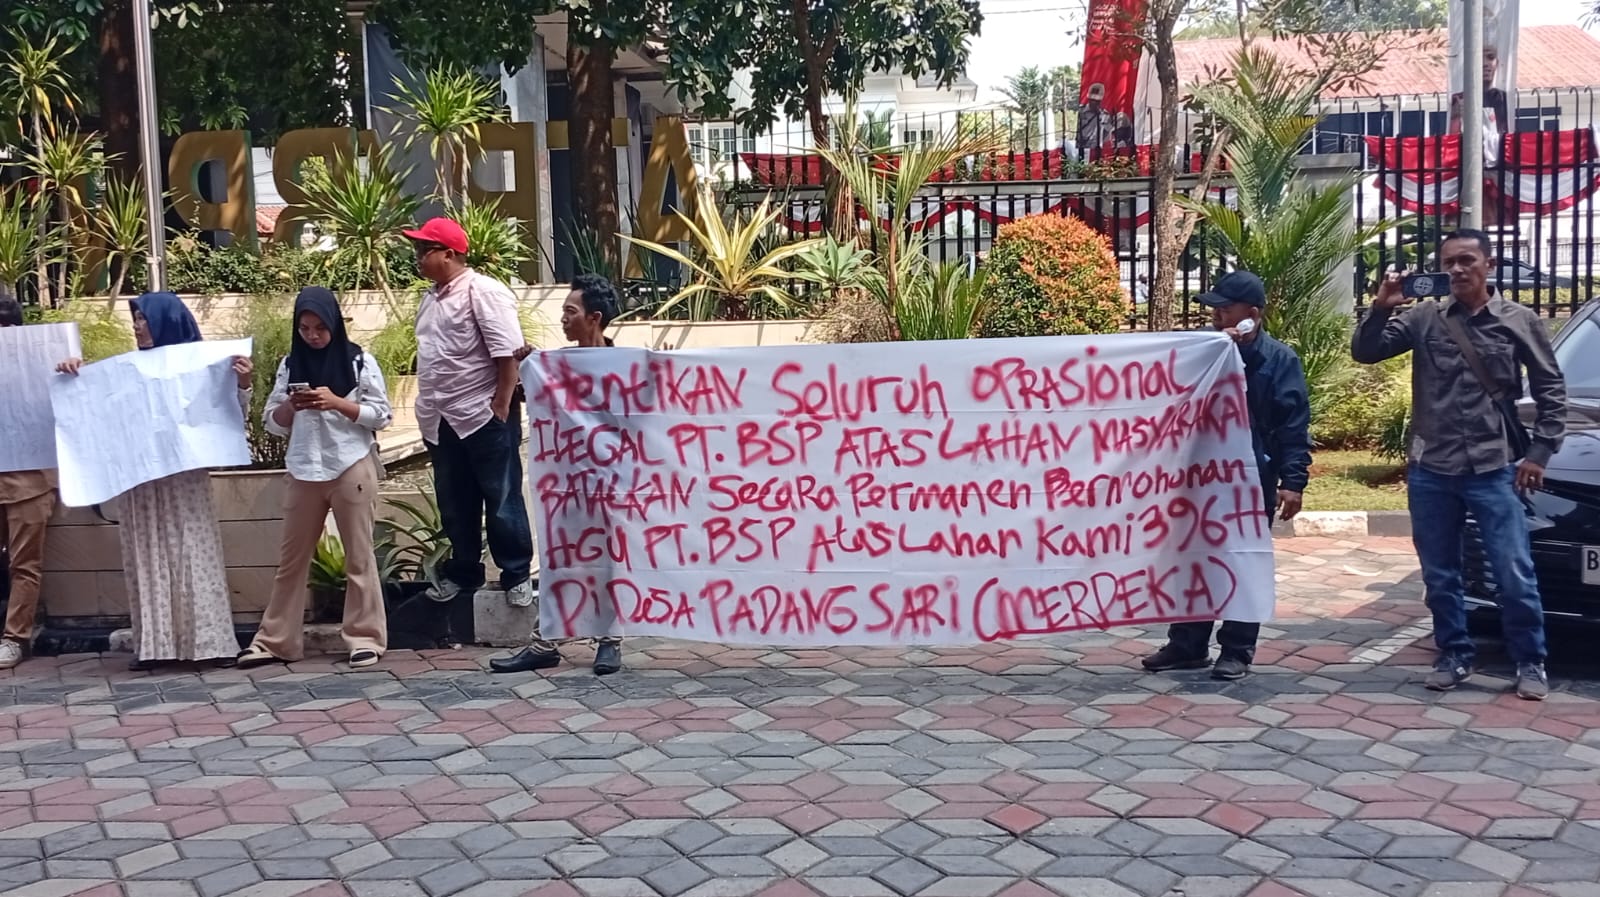 Hentikan Seluruh OPRASional
ILEGAL PT. BSP ATAS LAHAN MASYARAKAT
BATALKAN Secara Permanen Permohonan
HGU PT. BSP Atas Lahan Kami 396 H
Di Desa PADANG SARI (MERDEKA)
B